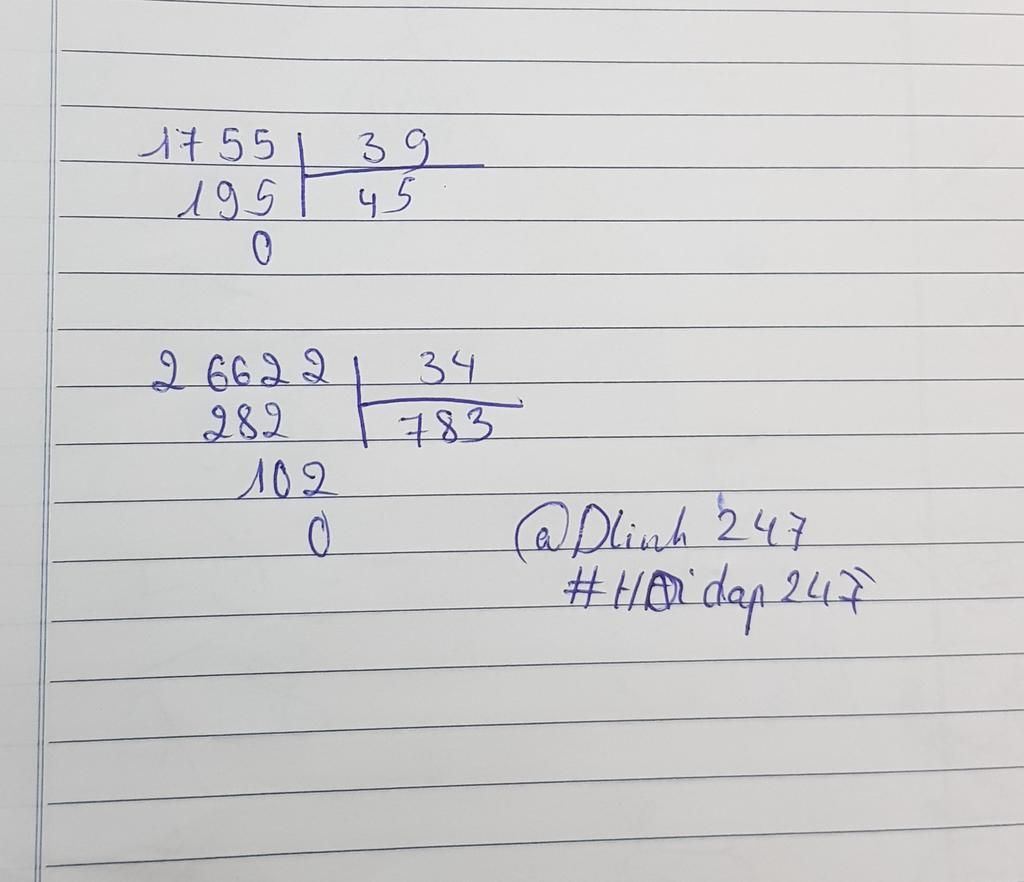 1755 39
195 45
0
26622 34
282 783
102
0
@Dlinh 247
#Hỏi dap 247